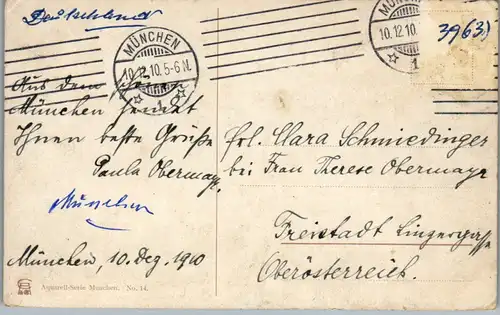 Deutschland
MÜNCHEN
10.12.10. 5-6 N.
1.
MÜNCHEN
10.12.10.
1.
39(63)
Aus dem
München sendet
Ihnen beste Grüße
Paula Obermayr.
München
München, 10. Dez. 1910
Frl. Clara Schmiedinger
bei Frau Therese Obermayr
Freistadt Linzergasse
Oberösterreich.
Aquarell-Serie München. No. 14.